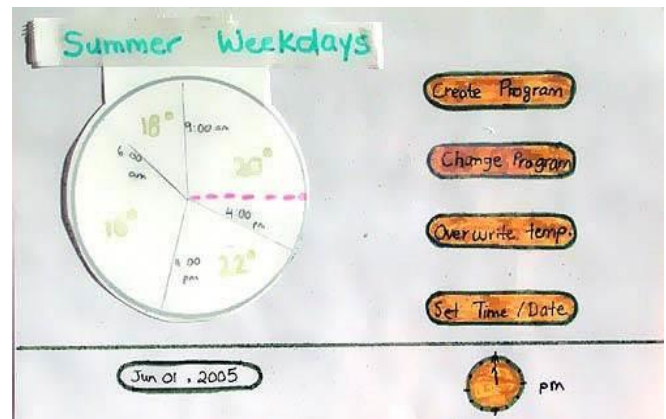 Summer Weekdays
18°
9:00 am
20°
6:00
am
4:00
pm
:00
pm
22°
Create Program
Change Program
Overwrite temp.
Set Time / Date
Jun 01, 2005
pm